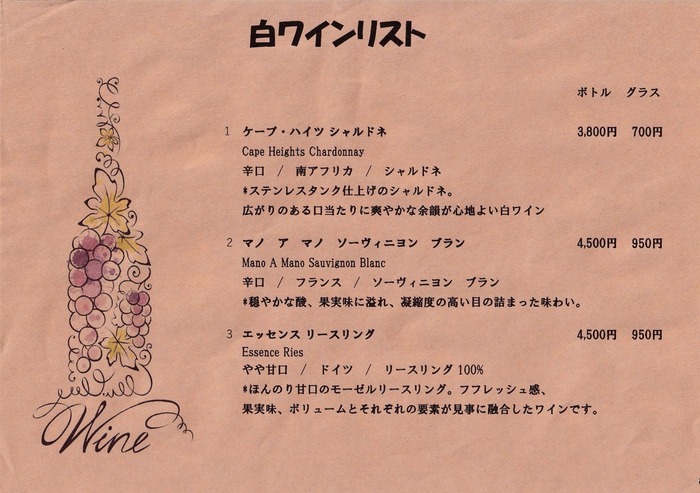 白ワインリスト
ボトル グラス
1 ケープ・ハイツ シャルドネ 3,800円 700円
Cape Heights Chardonnay
辛口 / 南アフリカ / シャルドネ
*ステンレスタンク仕上げのシャルドネ。
広がりのある口当たりに爽やかな余韻が心地よい白ワイン
2 マノ ア マノ ソーヴィニヨン ブラン 4,500円 950円
Mano A Mano Sauvignon Blanc
辛口 / フランス / ソーヴィニヨン ブラン
*穏やかな酸、果実味に溢れ、凝縮度の高い目の詰まった味わい。
3 エッセンス リースリング 4,500円 950円
Essence Ries
やや甘口 / ドイツ / リースリング 100%
*ほんのり甘口のモーゼルリースリング。フフレッシュ感、
果実味、ボリュームとそれぞれの要素が見事に融合したワインです。
Wine